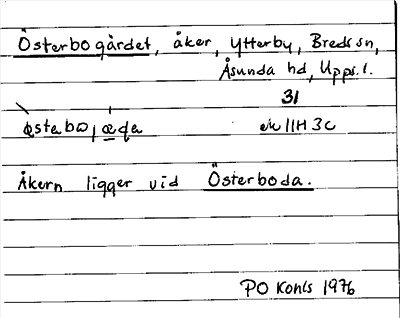 Österbo gärdet, åker, Ytterby, Breds sn,
Åsunda hd, Upps. l.
31
ek 11H 3c
Åkern ligger vid Österboda.
PO Konls 1976